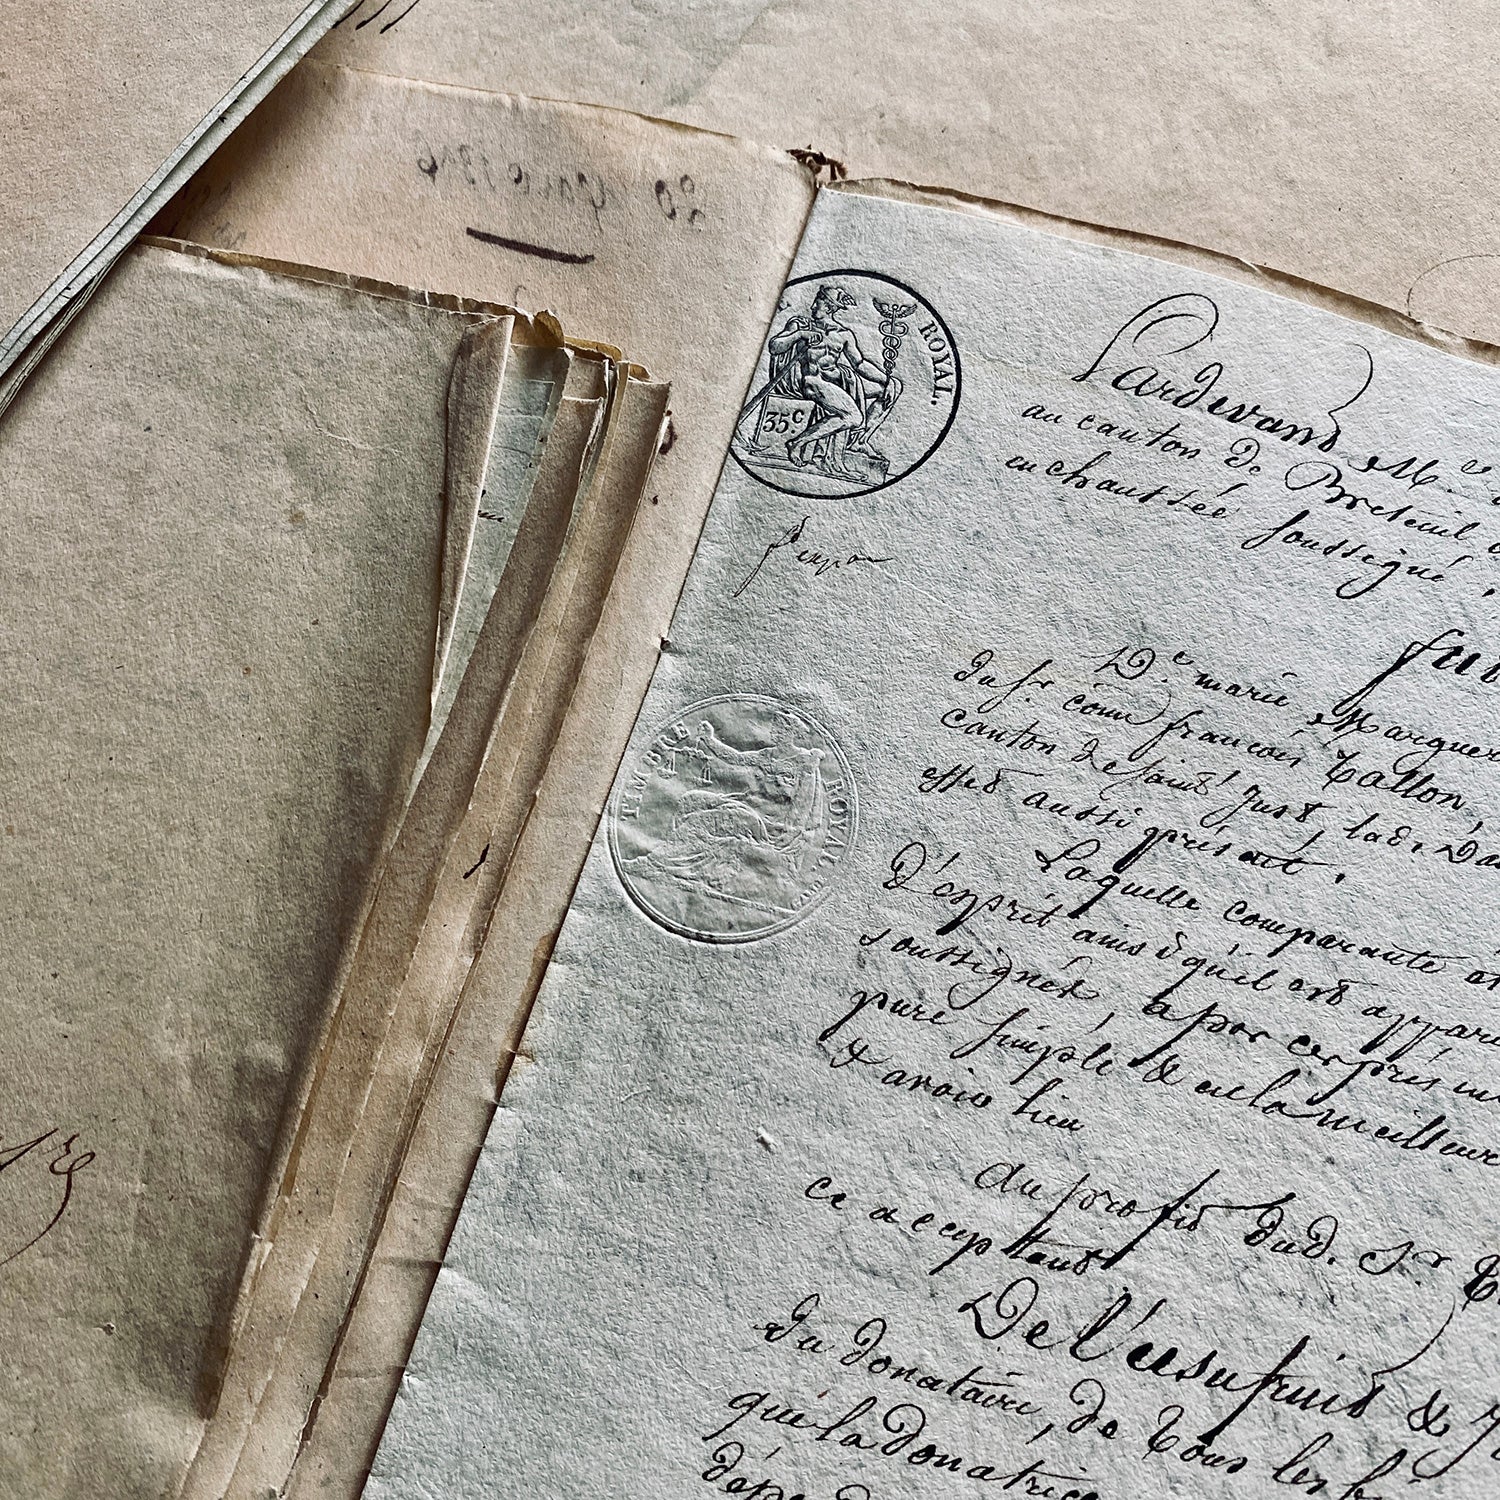 ROYAL.
35c.
TIMBRE ROYAL
Pardevant Me
au canton de Breteuil
en chaussée soussigné,
De marie Marguer
du sr come francois Tallon,
canton de saint Just lad. Da
effet aussi présent.
Laquelle comparante
D'esprit ainsi qu'il est appar
soussignés, a par ces pré
pure simple & en la meilleure
& avoir lieu
Au profit dud. Sr
ce acceptant
De l'usufruit &
du donataire, de tous les
que la Donatrice